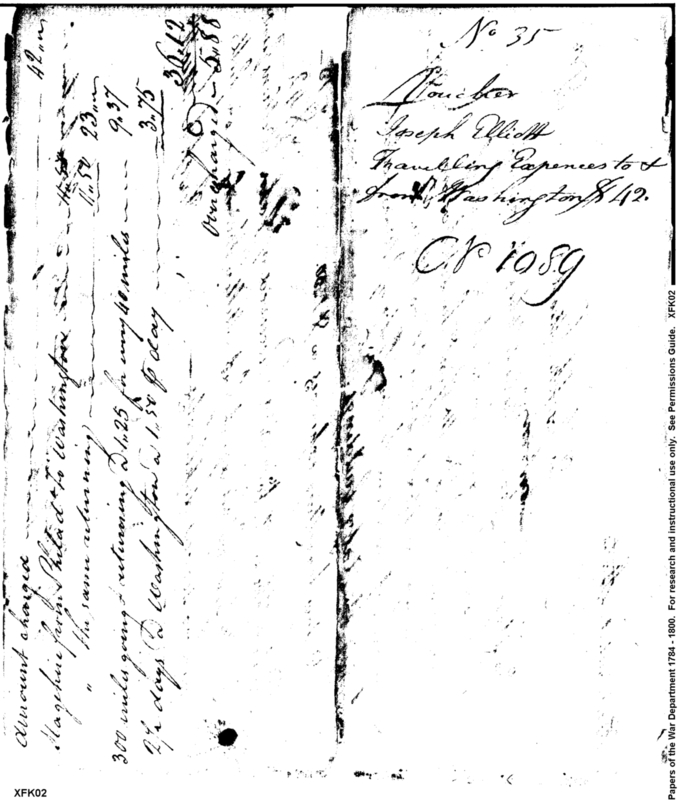 No 35
Voucher
Joseph Elliott
Travelling Expences to &
from Washington $ 42.
CN 1089
Amount charged 42,,
Stagehire from Philada to Washington 11,,50
" the same returning 11,,50 23,,
300 miles going & returning D 1,,25 for every 40 miles 9,,37
2½ days D Washington a 1,,50 ⅌ day 3,,75
36,12
Overcharged 5,,88
Papers of the War Department 1784 - 1800. For research and instructional use only. See Permissions Guide. XFK02
XFK02